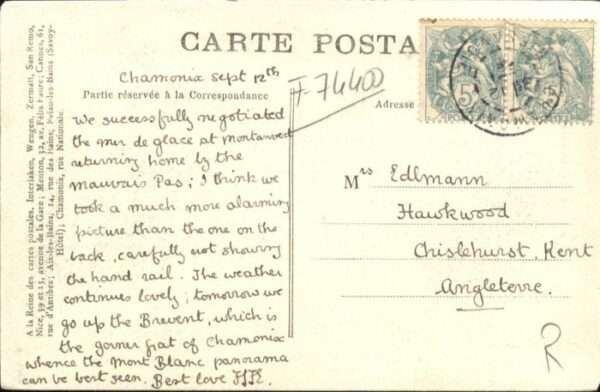 CARTE POSTA
Chamonix Sept 12th
F 74400
Partie réservée à la Correspondance
Adresse
We successfully negotiated
the mer de glace at montanvert
returning home by the
mauvais Pas; I think we
took a much more alarming
picture than the one on the
back, carefully not showing
the hand rail. The weather
continues lovely; tomorrow we
go up the Brevent, which is
the gorner grat of Chamonix
whence the Mont Blanc panorama
can be best seen. Best love
Mrs Edlmann
Hawkwood
Chislehurst. Kent
Angleterre.
R
5
A la Reine des cartes postales, Interlaken, Wengen, Zermatt, San Remo,
Nice, 39 et 15, avenue de la Gare; Menton, 32, av. Félix Faure; Cannes, 61,
rue d'Antibes; Aix-les-Bains, 14, rue des Bains; (Savoy-
Hôtel); Chamonix, rue Nationale.